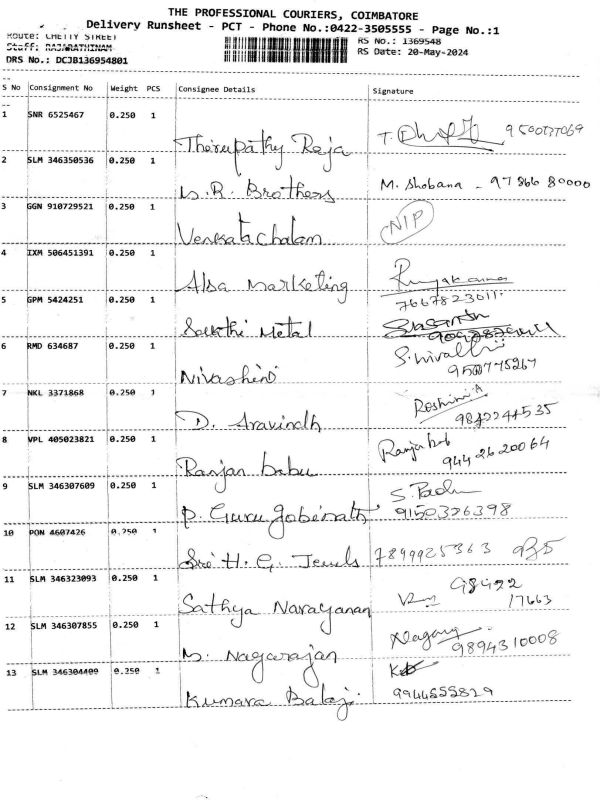 THE PROFESSIONAL COURIERS, COIMBATORE
Delivery Runsheet - PCT - Phone No.:0422-3505555 - Page No.:1
Route: CHETTY STREET
RS No.: 1369548
Staff: RAJARATHINAM
RS Date: 20-May-2024
DRS No.: DCJB136954801
S No Consignment No Weight PCS Consignee Details Signature
1 SNR 6525467 0.250 1
Thirupathy Raja T.
2 SLM 346350536 0.250 1
R. Brothers M. Shobana - 97866 80000
3 GGN 910729521 0.250 1
Venkatachalam NIP
4 IXM 506451391 0.250 1
Alsa Marketing
7667823011
5 GPM 5424251 0.250 1
Sakthi Metal
6 RMD 634687 0.250 1
Nivashini
7 NKL 3371868 0.250 1
Roshini.A
D. Aravindh
8 VPL 405023821 0.250 1
Ranjan babu 9442620064
9 SLM 346307609 0.250 1
P. Guru gobinath 9150326398
10 PON 4607426 0.250 1
Sri H. G. Jewels 7899925363
11 SLM 346323093 0.250 1
Sathya Narayanan 98422
17663
12 SLM 346307855 0.250 1
Nagarajan 9894310008
13 SLM 346304409 0.250 1
Kumara Balaji 9944555829